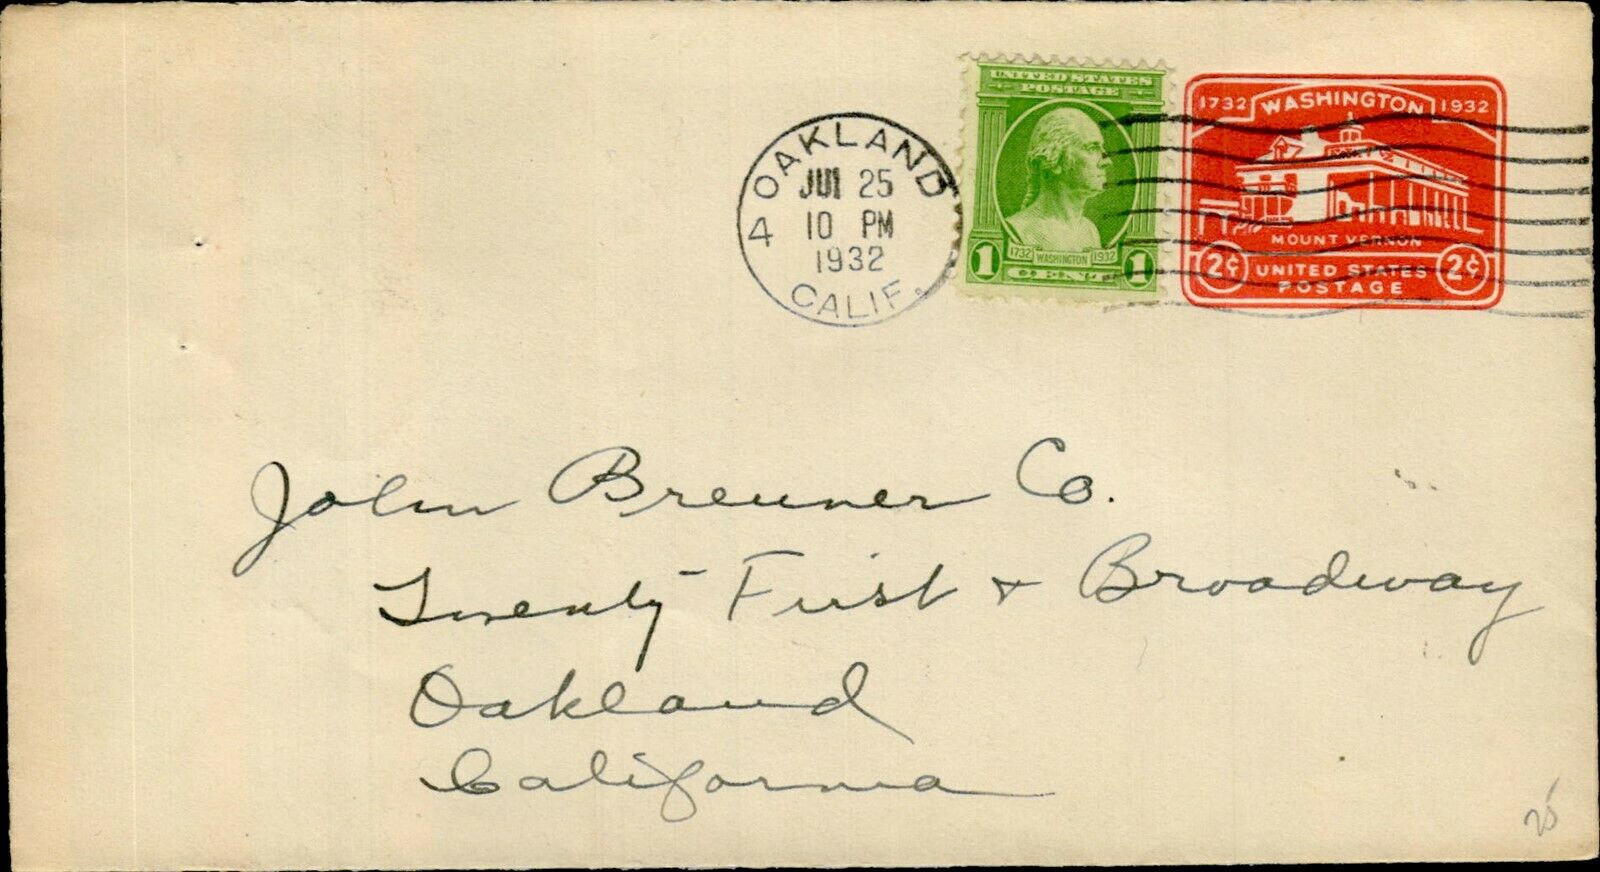 UNITED STATES
POSTAGE
1732 WASHINGTON 1932
1 CENT 1
1732 WASHINGTON 1932
MOUNT VERNON
2¢ UNITED STATES 2¢
POSTAGE
OAKLAND
4
JUL 25
10 PM
1932
CALIF.
John Breuner Co.
Twenty First & Broadway
Oakland
California
25